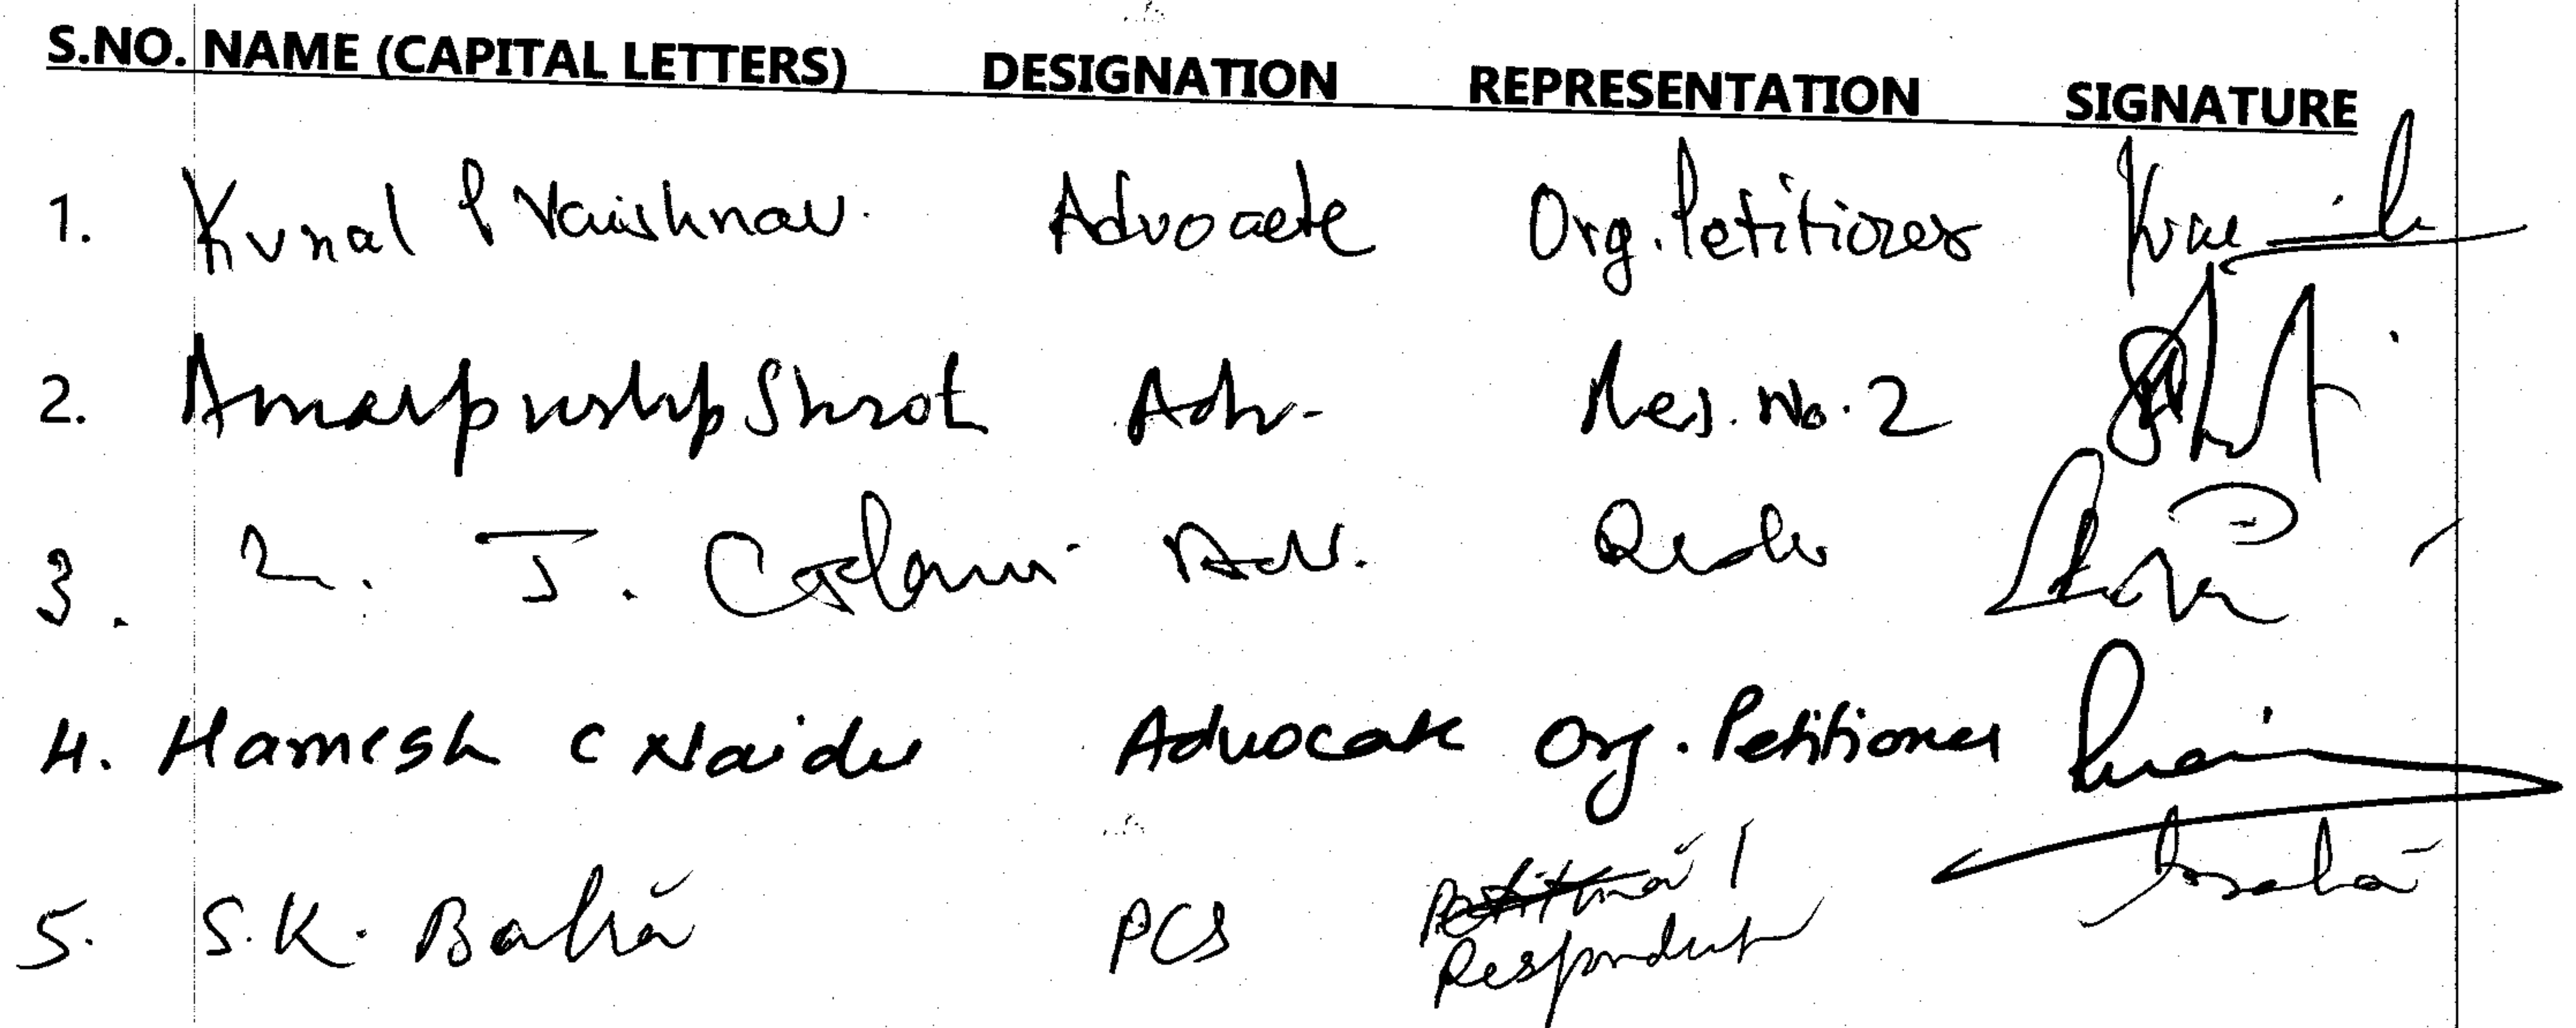 S.NO. NAME (CAPITAL LETTERS) DESIGNATION REPRESENTATION SIGNATURE
1. Kunal P Vaishnav. Advocate Org. Petitioner
2. Amarpushp Shrot Adv. Res. No. 2
3. J. Adv.
4. Hamesh C Naidu Advocate Org. Petitioner
5. S.K. PCS
Respondent